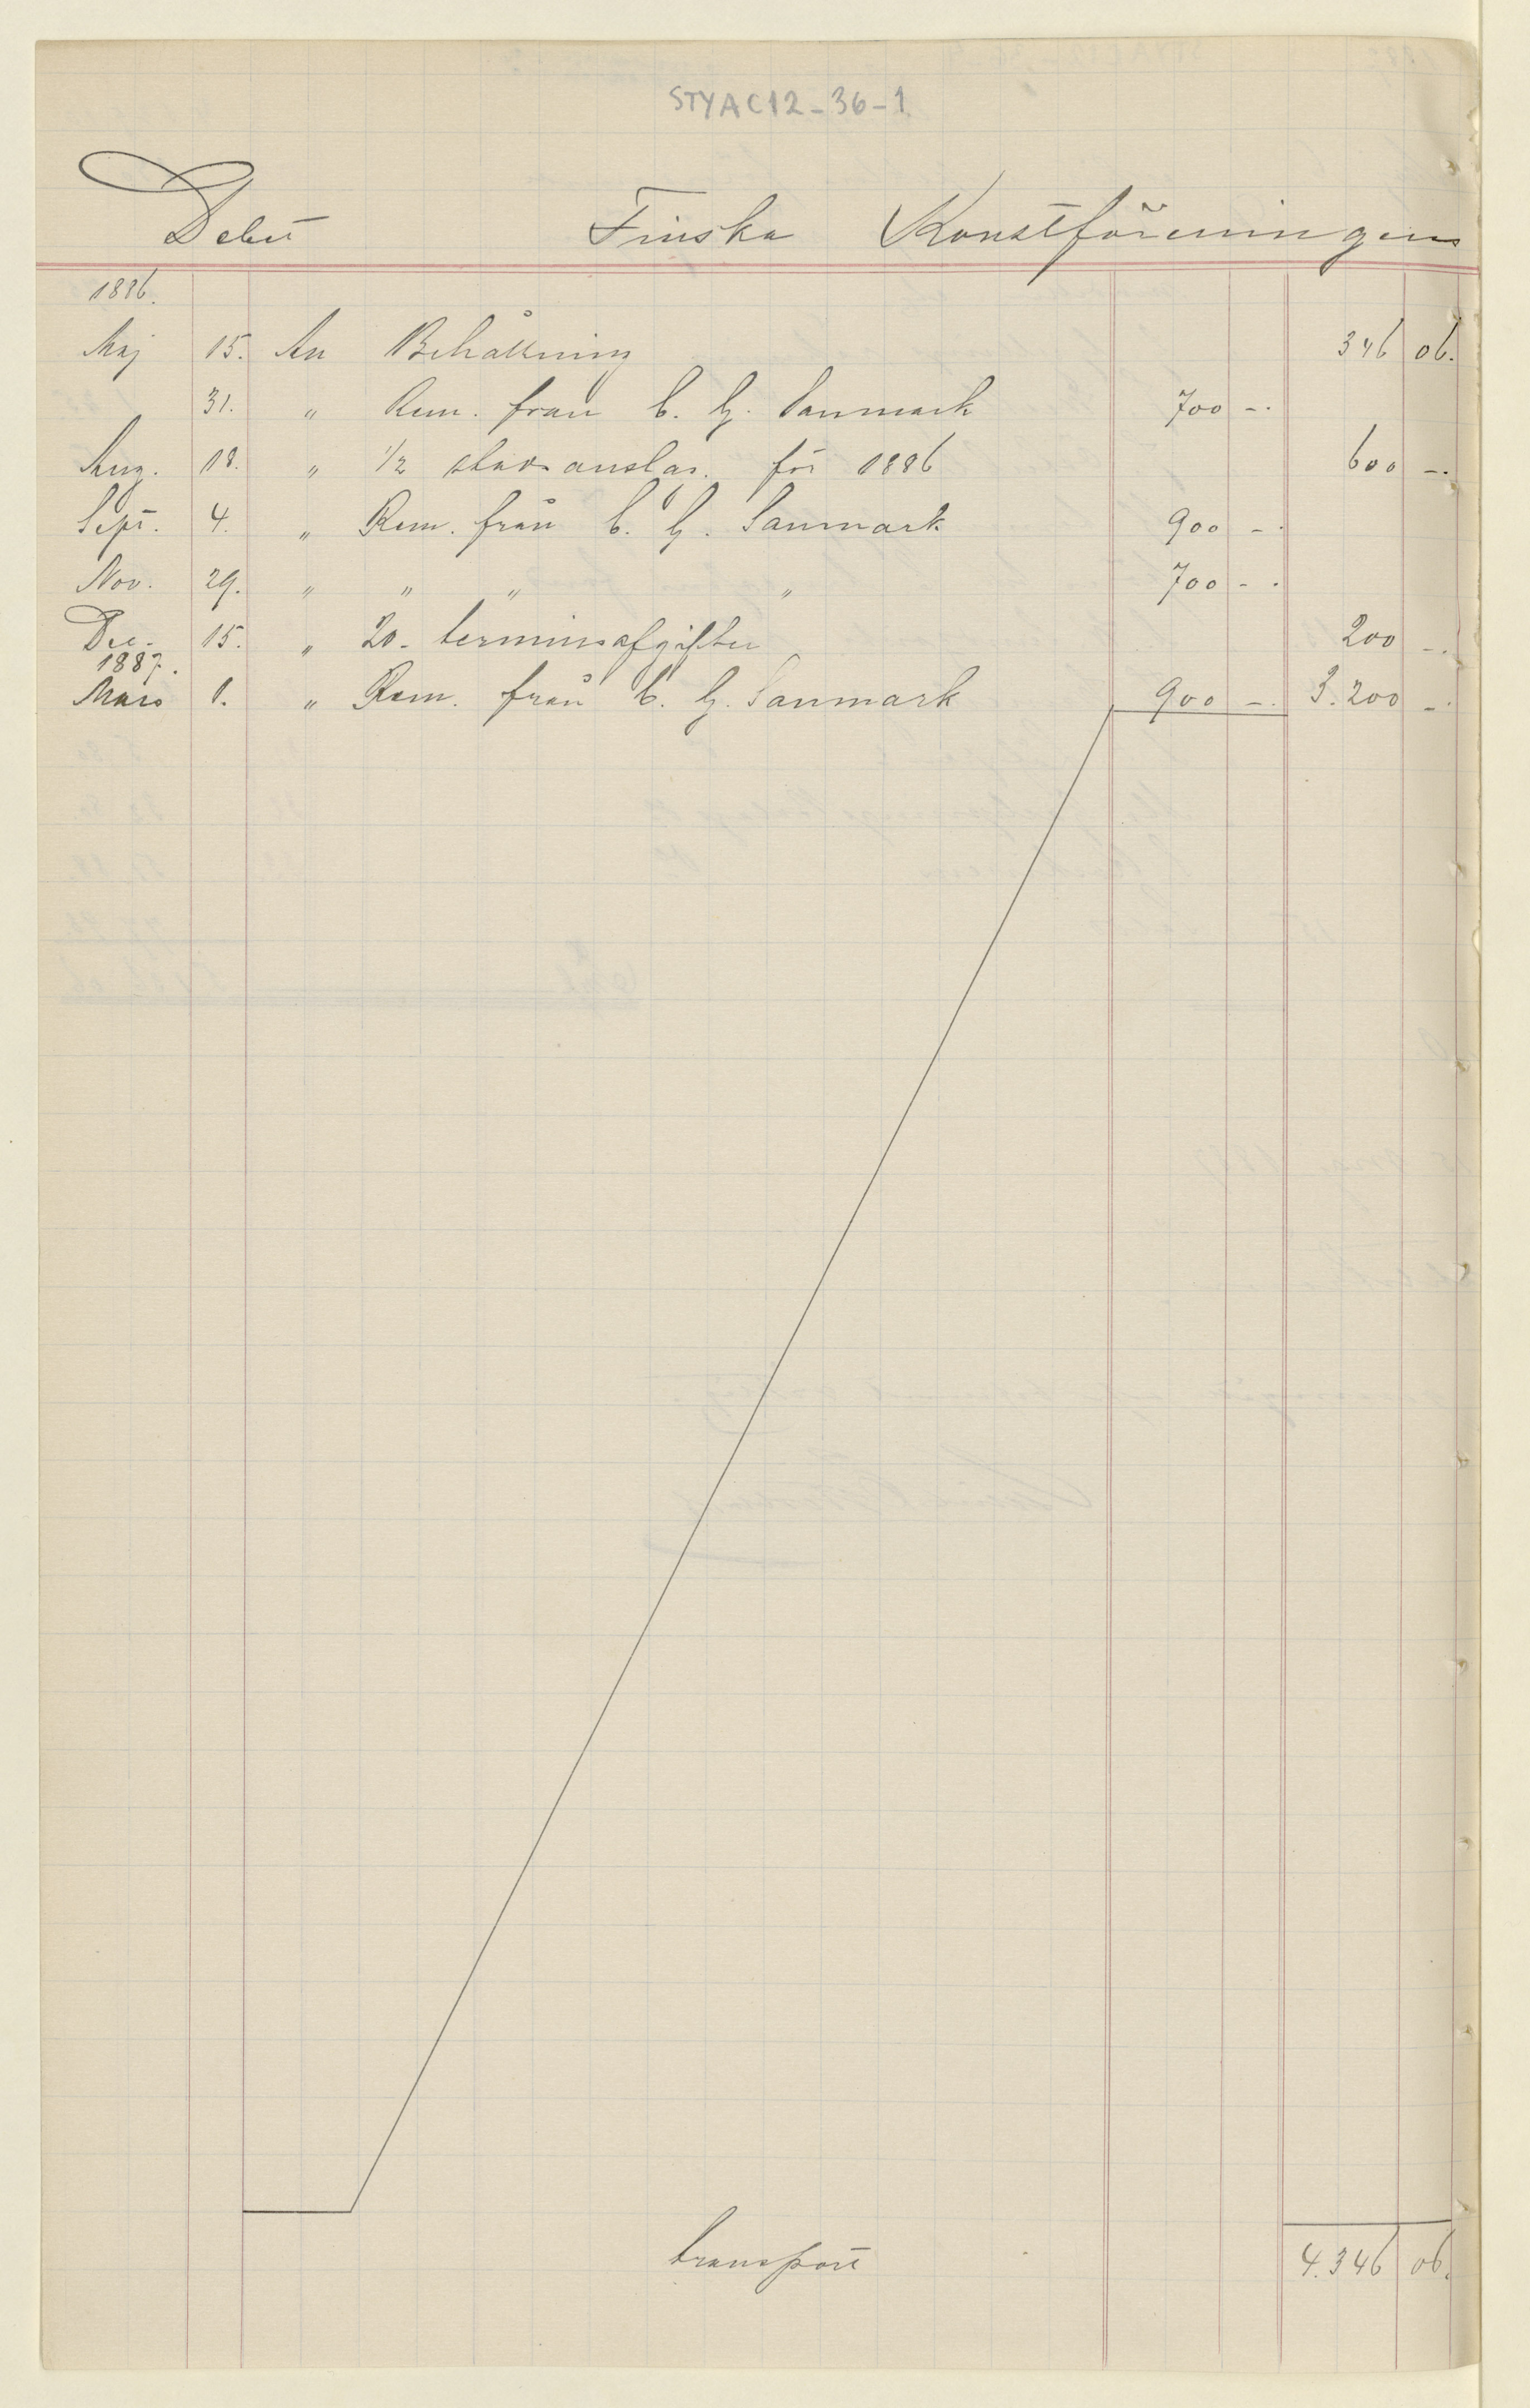 STYAC12-36-1
Debet Finska Konstföreningens
1886.
Maj 15. An Behållning 346 06.
31. " Rem. från C. G. Sanmark 700 -.
Aug. 18. " 1/2 stadsanslag. för 1886 600 -.
Sept. 4. " Rem. från C. G. Sanmark 900 -.
Nov. 29. " " " " 700 -.
Dec. 15. " 20. terminsafgifter 200 -.
1887.
Mars 1. " Rem. från C. G. Sanmark 900 -. 3.200 -.
transport 4.346 06.